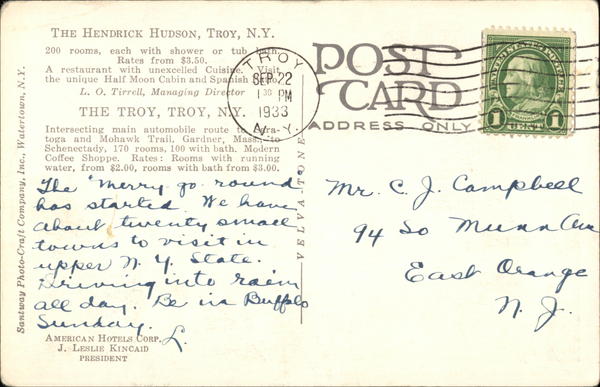 THE HENDRICK HUDSON, TROY, N.Y.
200 rooms, each with shower or tub bath.
Rates from $3.50.
A restaurant with unexcelled Cuisine. Visit
the unique Half Moon Cabin and Spanish
L. O. Tirrell, Managing Director
THE TROY, TROY, N.Y.
Intersecting main automobile route to Sara-
toga and Mohawk Trail, Gardner, Mass., to
Schenectady, 170 rooms, 100 with bath. Modern
Coffee Shoppe. Rates: Rooms with running
water, from $2.00, rooms with bath from $3.00.
The "Merry go round
has started. We have
about twenty small
towns to visit in
upper N. Y. State.
Driving into rain
all day. Be in Buffalo
Sunday.
L.
AMERICAN HOTELS CORP.
J. LESLIE KINCAID
PRESIDENT
Santway Photo-Craft Company, Inc., Watertown, N.Y.
VELVATONE
TROY
SEP 22
1 30 PM
1933
N.Y.
POST
CARD
ADDRESS ONLY
UNITED STATES POSTAGE
FRANKLIN
1 CENT 1
Mr. C. J. Campbell
94 So Munn Ave
East Orange
N. J.